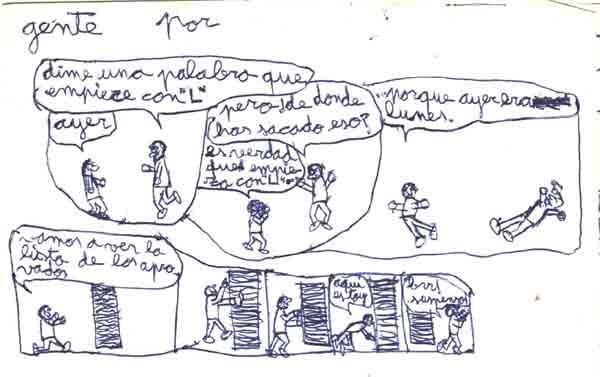 gente por
dime una palabra que
empiece con "L"
ayer
pero ¿de donde
has sacado eso?
es verdad
que empie
za con "L"
porque ayer era
lunes.
vamos a ver la
lista de los apro
vados
aqui
estoy
brr!
suspenso!